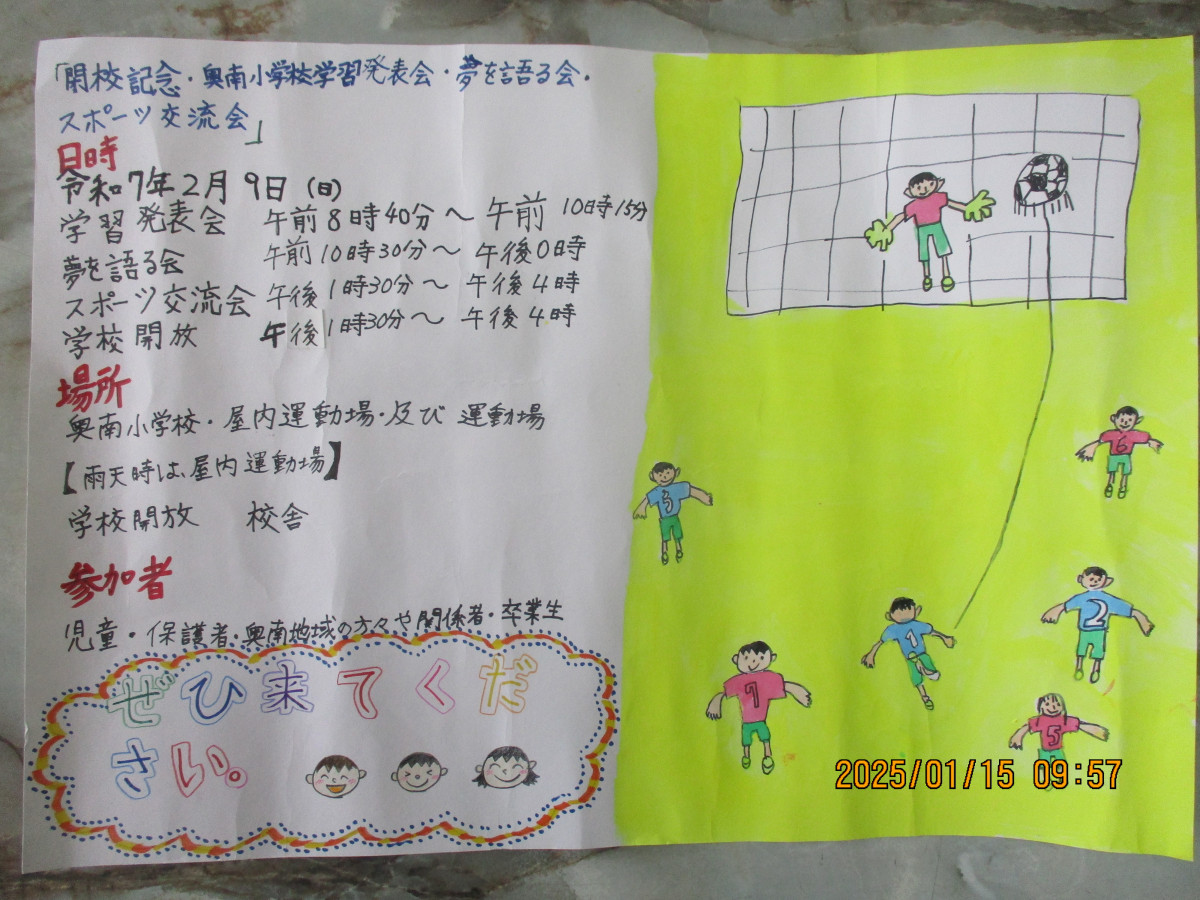 「開校記念・奥南小学校学習発表会・夢を語る会・
スポーツ交流会」
日時
令和7年2月9日(日)
学習発表会 午前8時40分～午前10時15分
夢を語る会 午前10時30分～午後0時
スポーツ交流会 午後1時30分～午後4時
学校開放 午後1時30分～午後4時
場所
奥南小学校・屋内運動場・及び運動場
【雨天時は、屋内運動場】
学校開放 校舎
参加者
児童・保護者・奥南地域の方々や関係者・卒業生
ぜひ来てくだ
さい。
6
3
2
1
7
5
2025/01/15 09:57